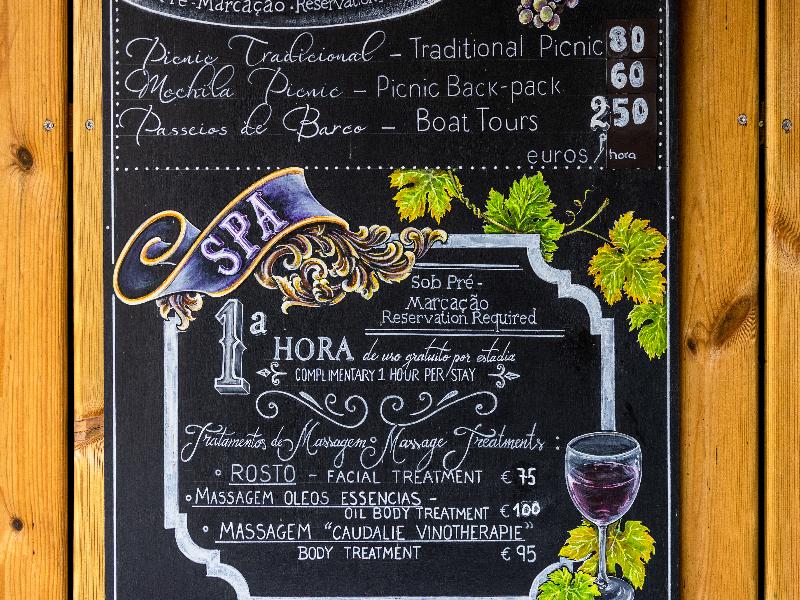 Pré-Marcação · Reservation
Picnic Tradicional – Traditional Picnic 80
Mochila Picnic – Picnic Back-pack 60
Passeios de Barco – Boat Tours 250
euros / hora
SPA
Sob Pré-
Marcação
Reservation Required
1ª HORA de uso gratuito por estadia
COMPLIMENTARY 1 HOUR PER STAY
Tratamentos de Massagem · Massage Treatments :
• ROSTO – FACIAL TREATMENT € 75
• MASSAGEM OLEOS ESSENCIAS –
OIL BODY TREATMENT € 100
• MASSAGEM "CAUDALIE VINOTHERAPIE"
BODY TREATMENT € 95